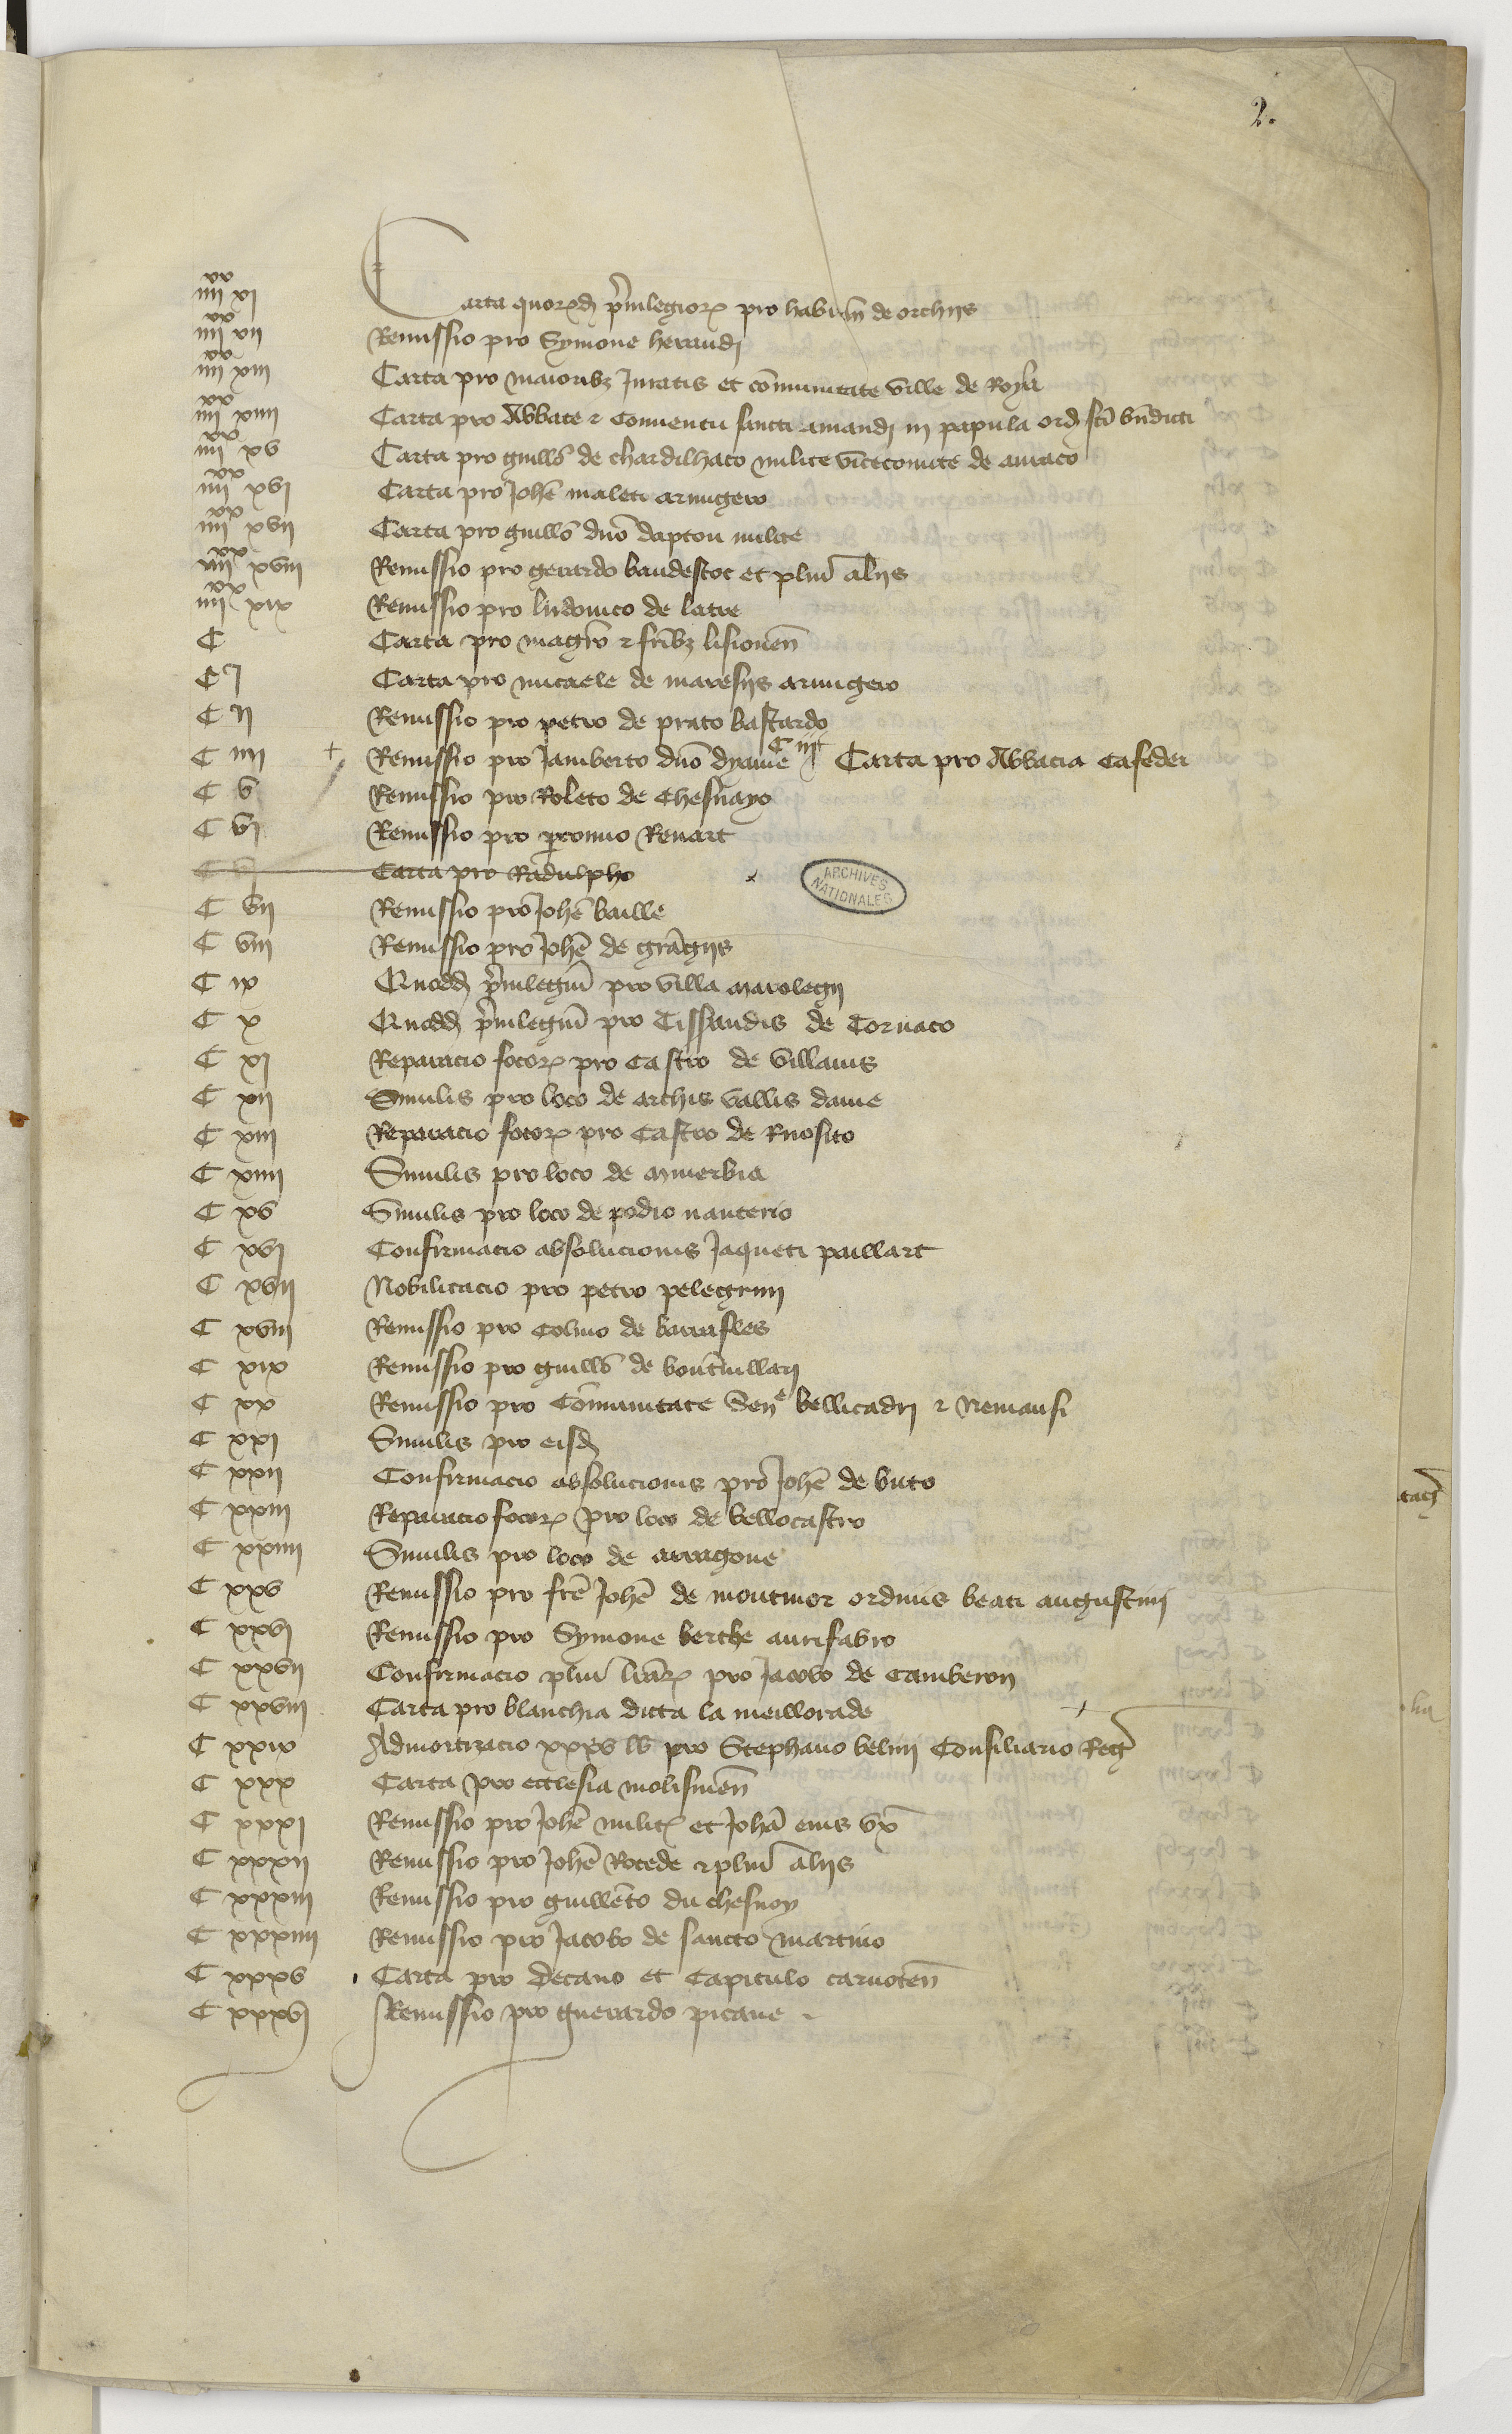 2.
iiii xx xi Carta quorumd privilegior pro habitan de orchiis
iiii xx xii Remissio pro Symone heraudi
iiii xx xiii Carta pro maioribz Juratis et communitate ville de Roya
iiii xx xiiii Carta pro Abbate et Conventu sancti amandi in papula ord sci bndicti
iiii xx xv Carta pro guillo de chardilhaco milite vicecomite de auraco
iiii xx xvi Carta pro Johe maleti armigero
iiii xx xvii Carta pro guillo dno dapton milite
iiii xx xviii Remissio pro gerardo baudestot et plur aliis
iiii xx xix Remissio pro ludovico de latre
C Carta pro magro et fribz lisionen
C i Carta pro micaele de maresiis armigero
C ii Remissio pro petro de prato bastardo
C iiii + Remissio pro Jamberto dno dyame C iii Carta pro Abbacia Casedei
C v Remissio pro Roleto de Chesnayo
C vi Remissio pro peronno Renart
C vi Carta pro Radulpho
ARCHIVES NATIONALES
C vii Remissio pro Johe baille
C viii Remissio pro Johe de grangiis
C ix Quodd privilegium pro villa marolegii
C x Quodd privilegium pro Tissandis de Tornaco
C xi Reparacio focor pro Castro de villanis
C xii Similis pro loco de archis vallis dame
C xiii Reparacio focor pro Castro de Ruosito
C xiiii Similis pro loco de minerbia
C xv Similis pro loco de podio nauterio
C xvi Confirmacio absolucionis Jaqueti paillart
C xvii Nobilitacio pro petro pelegrini
C xviii Remissio pro Colino de barrafles
C xix Remissio pro guillo de bontivillari
C xx Remissio pro Communitate Sene bellicadri et Nemausi
C xxi Similis pro eisd
C xxii Confirmacio absolucionis pro Johe de buto
C xxiii Reparacio focor pro loco de bellocastro
C xxiiii Similis pro loco de arragone
C xxv Remissio pro fre Johe de montmor ordinis beati augustini
C xxvi Remissio pro Symone berthe aurifabro
C xxvii Confirmacio plur litar pro Jacobo de Camberon
C xxviii Carta pro blanchia dicta la meillorade
C xxix Admortizacio xxxv lb pro Stephano belini Consiliario Reg
C xxx Carta pro ecclesia molismen
C xxxi Remissio pro Johe milit et Joha eius ux
C xxxii Remissio pro Johe Rocede et plur aliis
C xxxiii Remissio pro guillemto du chesnoy
C xxxiiii Remissio pro Jacobo de sancto martino
C xxxv Carta pro Decano et Capitulo carnoten
C xxxvi Remissio pro guerardo picane